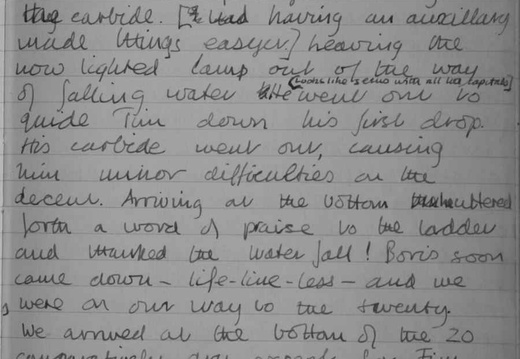 carbide. [I had having an auxillary
made things easyer] heaving the
now lighted lamp out of the way
(looks like Semo with all his capitals)
of falling water went out to
guide Tim down his first drop.
His carbide went out, causing
him minor difficulties on the
decent. Arriving at the bottom uttered
forth a word of praise to the ladder
and thanked the water fall! Boris soon
came down – life-line-less – and we
were on our way to the twenty.
We arrived at the bottom of the 20
comparatively dry except for Tim